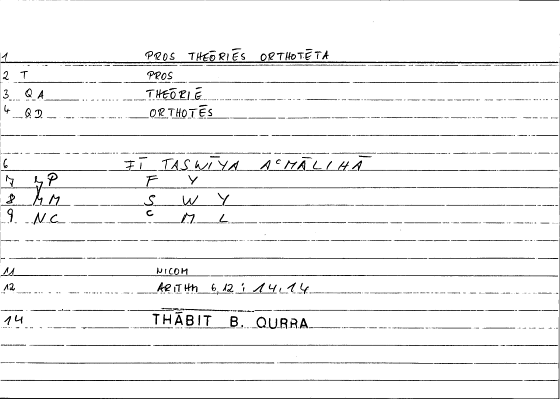 1 PROS THEŌRIĒS ORTHOTĒTA
2 T PROS
3 QA THEŌRIĒ
4 QD ORTHOTĒS
6 FĪ TASWĪYA AᶜMĀLIHĀ
7 P F Y
8 MM S W Y
9 NC ᶜ M L
11 NICOM
12 ARITHM 6,12 : 14,14
14 THĀBIT B. QURRA